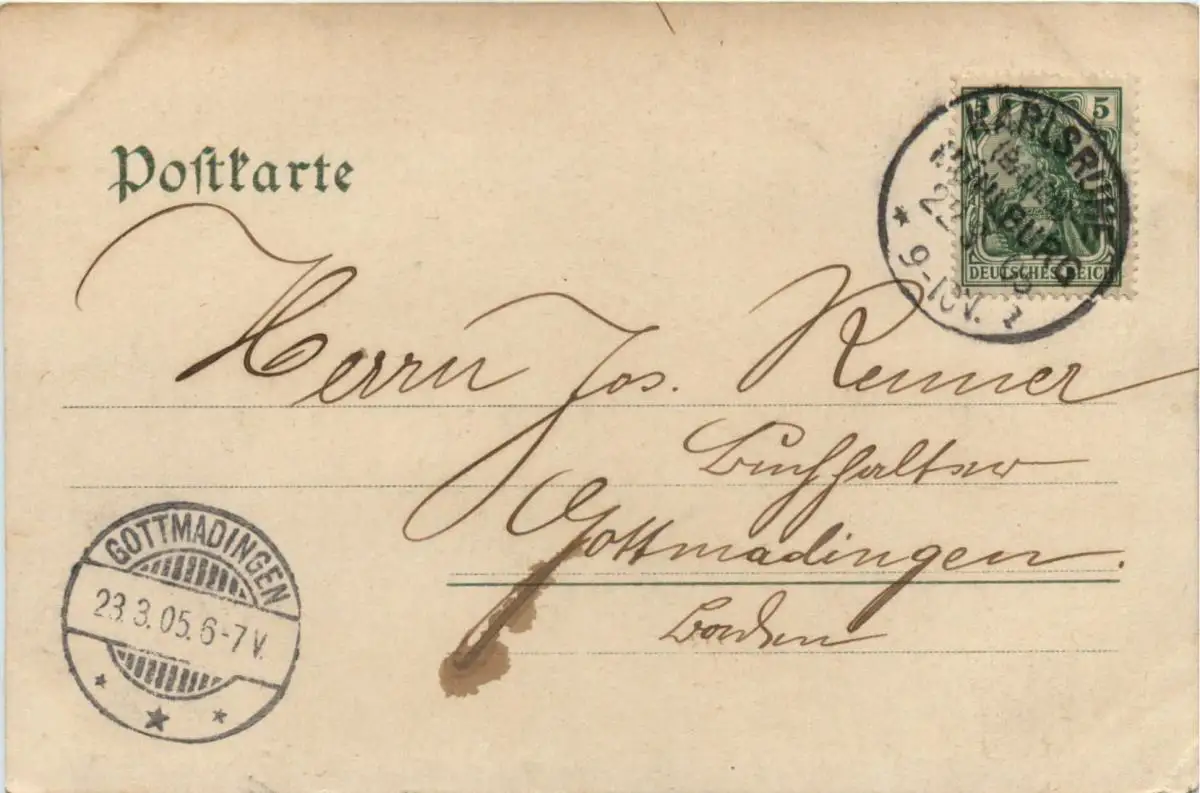 Postkarte
5
DEUTSCHES REICH
KARLSRUHE
(BADEN)
MÜHLBURG
22 3 05
9-10V.
Herrn Jos. Renner
Buchhalter
Gottmadingen.
Baden
GOTTMADINGEN
23.3.05.6-7V.